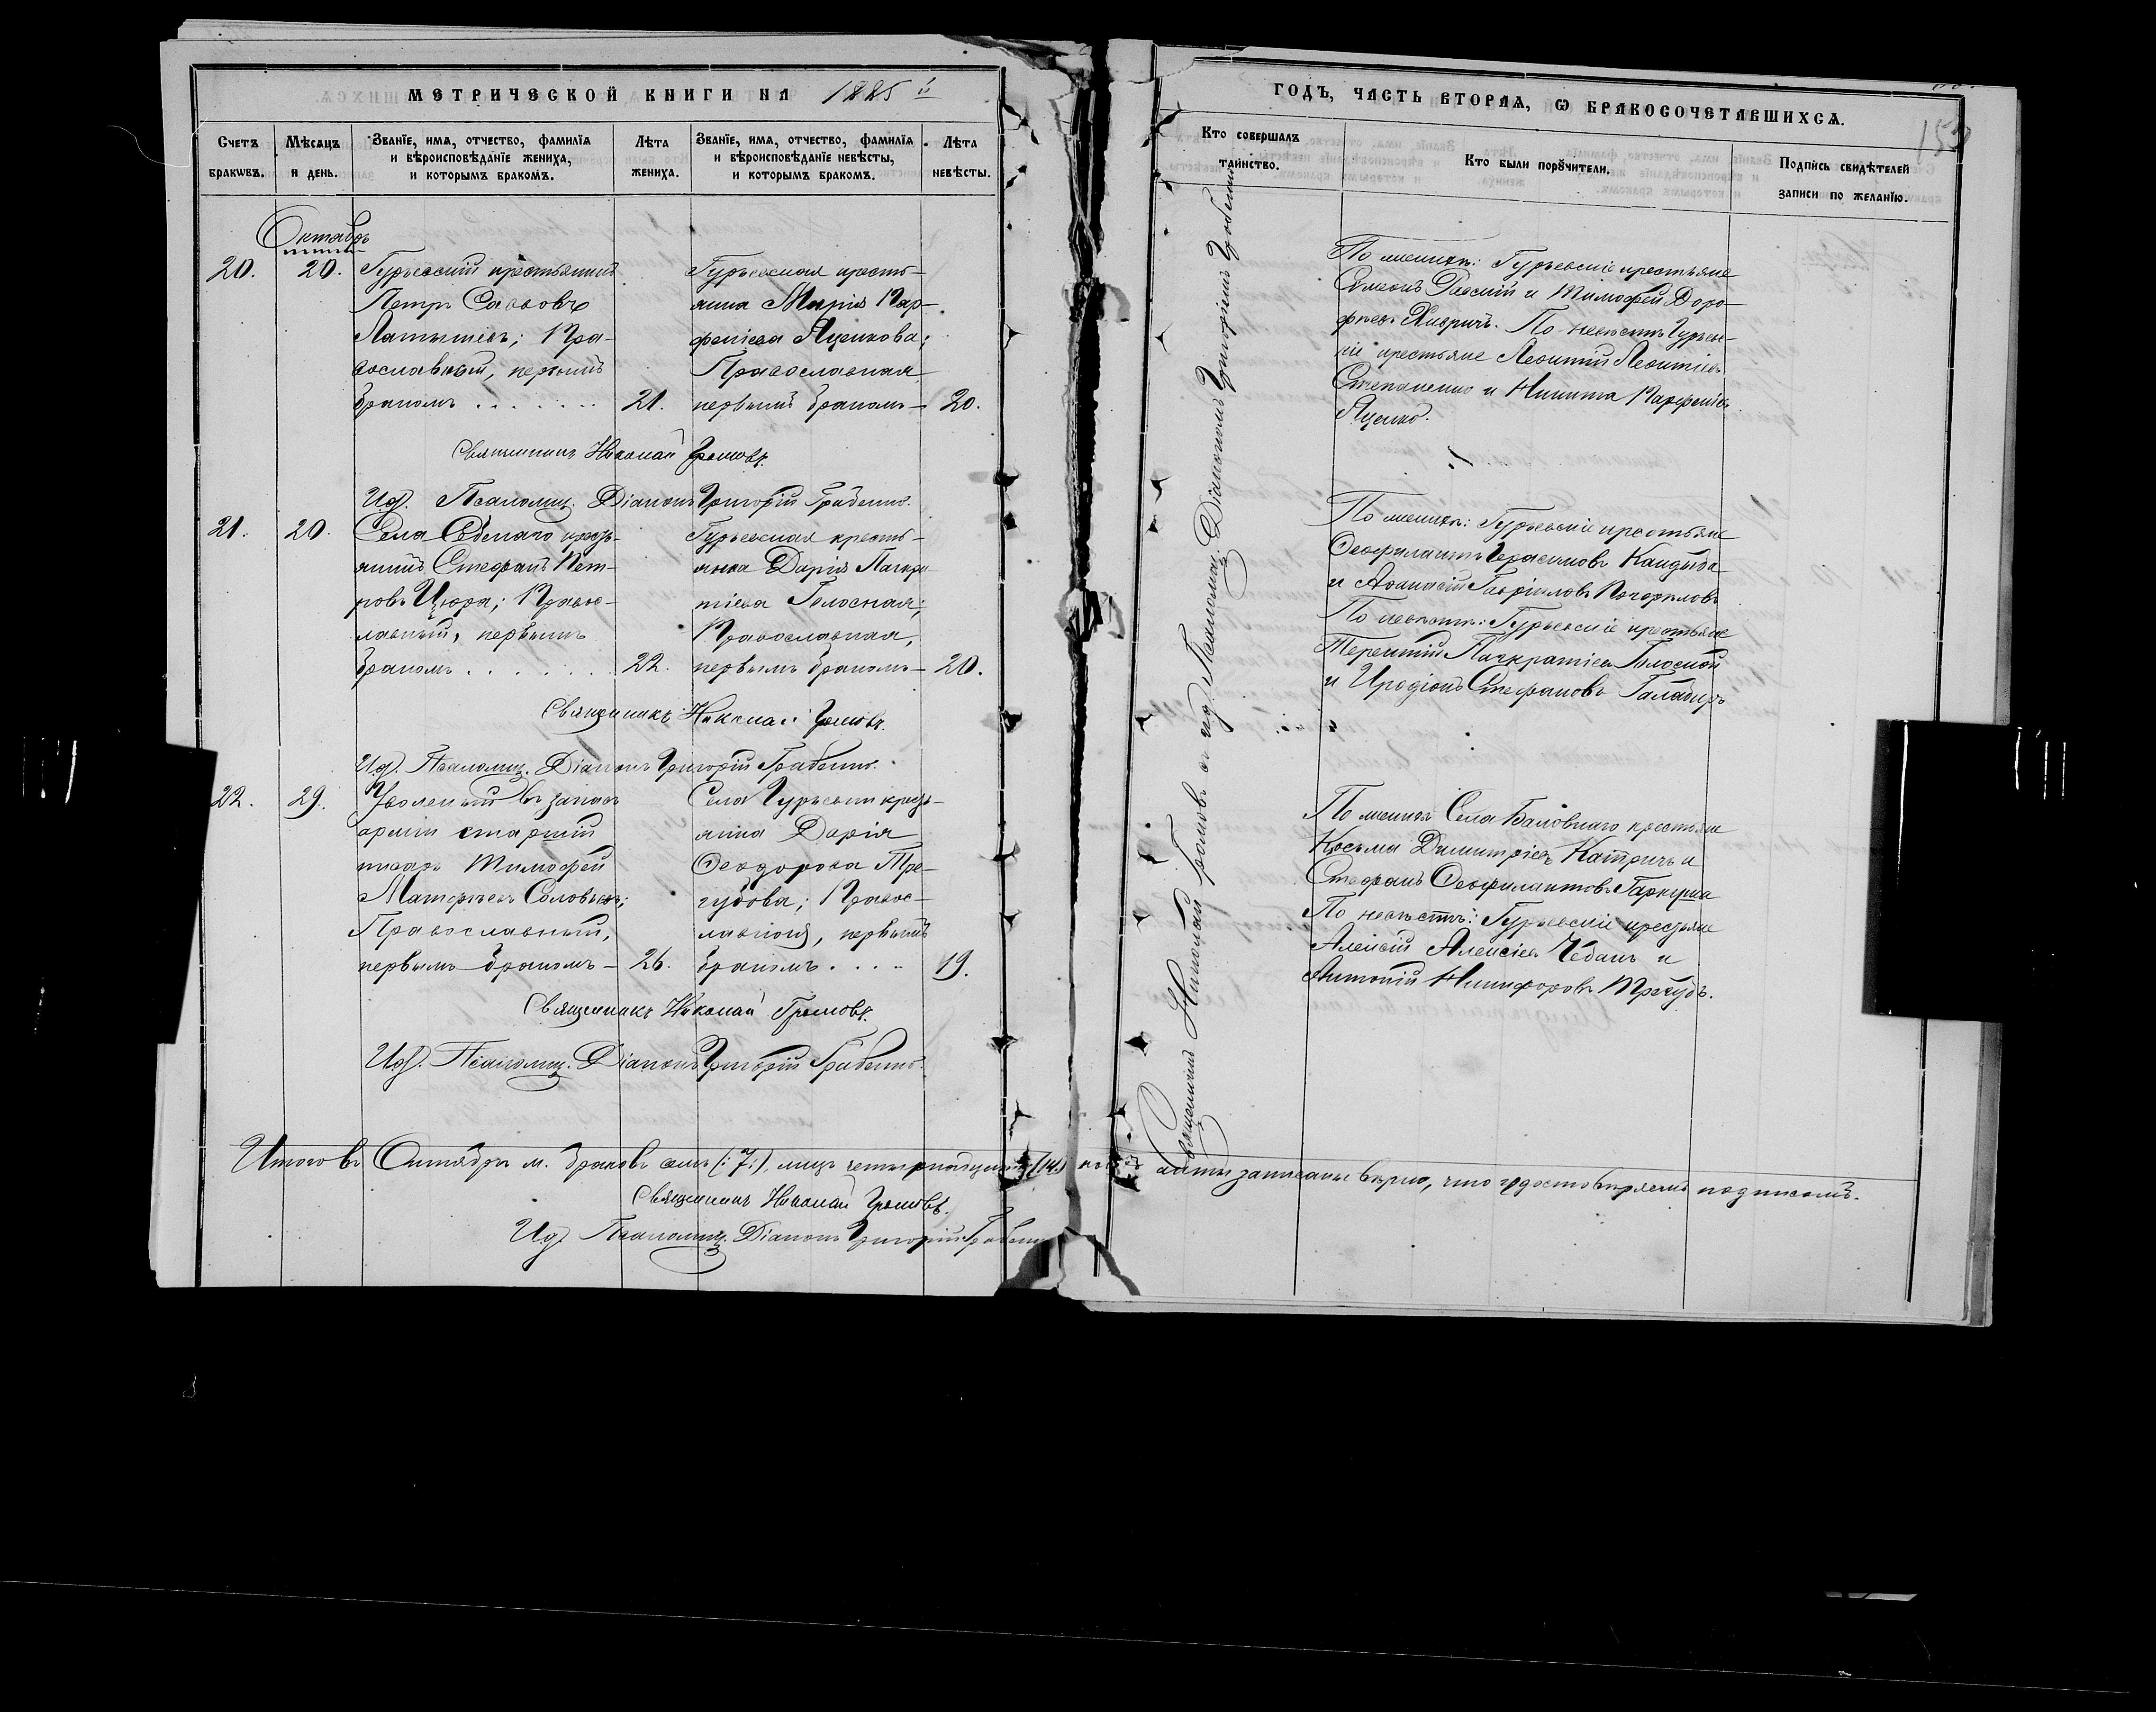 МЕТРИЧЕСКОЙ КНИГИ НА 1885 й
Счетъ браковъ.
Мѣсяцъ и день.
Званіе, имя, отчество, фамилія
и вѣроисповѣданіе жениха,
и которымъ бракомъ.
Лѣта
жениха.
Званіе, имя, отчество, фамилія
и вѣроисповѣданіе невѣсты,
и которымъ бракомъ.
Лѣта
невѣсты.
Октябрь
20. 20. Гурьевскій крестьянинъ
Петръ Саввовъ
Латышевъ; Пра-
вославный, первымъ
бракомъ . . . . . . 21.
Гурьевская кресть-
янка Марія Пар-
феніева Яценкова;
Православная
первымъ бракомъ — 20.
Священникъ Николай Громовъ.
И.д. Псаломщ. Діаконъ Григорій
21. 20. Села кресть-
янинъ Стефанъ Пет-
ровъ Цюра; Правос-
лавный, первымъ
бракомъ . . . . . . 22.
Гурьевская кресть-
янка Дарія Панкра
тіева Голосная;
Православная,
первымъ бракомъ — 20.
Священникъ Николай Громовъ.
И.д. Псаломщ. Діаконъ Григорій
22. 29. Уволенный въ запасъ
арміи старшій
писарь Тимофей
Матфѣевъ Соловьевъ;
Православный,
первымъ бракомъ — 26.
Села Гурьевки кресть-
янка Дарія
Феодорова Тре-
губова; Правос-
лавной, первымъ
бракомъ . . . . 19.
Священникъ Николай Громовъ.
И.д. Псаломщ. Діаконъ Григорій
Итого въ Октябрѣ м. браковъ семь (: 7 :), лицъ четырнадцать (14)
Священникъ Николай Громовъ.
И.д. Псаломщ. Діаконъ Григорій
ГОДЪ, ЧАСТЬ ВТОРАЯ, Ѡ БРАКОСОЧЕТАВШИХСЯ.
Кто совершалъ
таинство.
Кто были поручители.
Подпись свидѣтелей
записи по желанію.
Священникъ Николай Громовъ съ и.д. Псаломщ. Діакономъ Григоріемъ
По женихѣ: Гурьевскіе крестьяне
Симеонъ и Тимофей Доро-
фѣевъ. По невѣстѣ Гурьевс-
кіе крестьяне Леонтій Леонтіевъ
Степаненко и Никита Парфеніевъ
Яценко.
По женихѣ: Гурьевскіе крестьяне
Феофилактъ Герасимовъ Кандыба
и Афанасій Гавріиловъ Погорѣловъ
По невѣстѣ: Гурьевскіе крестьяне
Терентій Панкратіевъ Голосной
и Иродіонъ Стефановъ
По женихѣ Села Баловнаго крестьяне
Косьма Димитріевъ Катричъ и
Стефанъ Феофилактовъ Гаркуша
По невѣстѣ: Гурьевскіе крестьяне
Алексій Алексіевъ Чебанъ и
Антоній Никифоровъ Трегубъ.
акты записаны вѣрно, что удостовѣряемъ подписомъ.